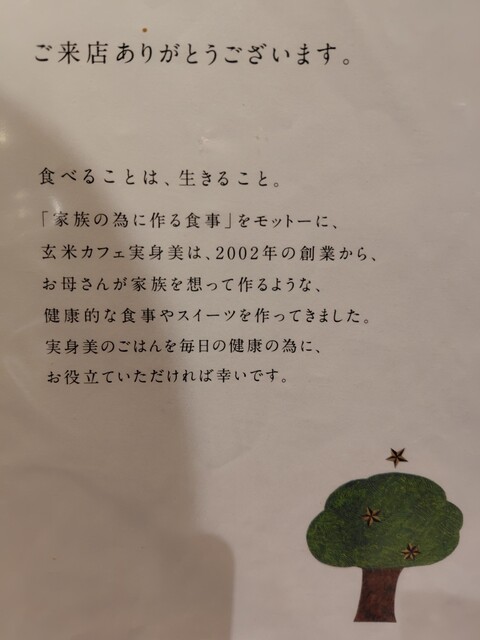 ご来店ありがとうございます。
食べることは、生きること。
「家族の為に作る食事」をモットーに、
玄米カフェ実身美は、2002年の創業から、
お母さんが家族を想って作るような、
健康的な食事やスイーツを作ってきました。
実身美のごはんを毎日の健康の為に、
お役立ていただければ幸いです。